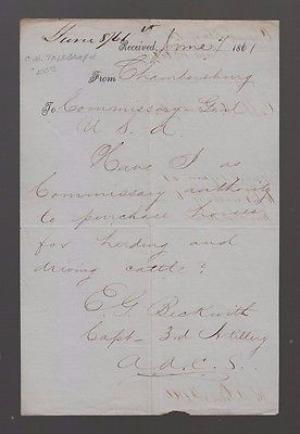 June 8/61
Received, June 7 1861
From Chambersburg
To Commissary Genl
U. S. A.
Have I as
Commissary, authority
to purchase horses
for herding and
driving cattle?
E. G. Beckwith
Capt 3rd Artillery
A. d. C. S.